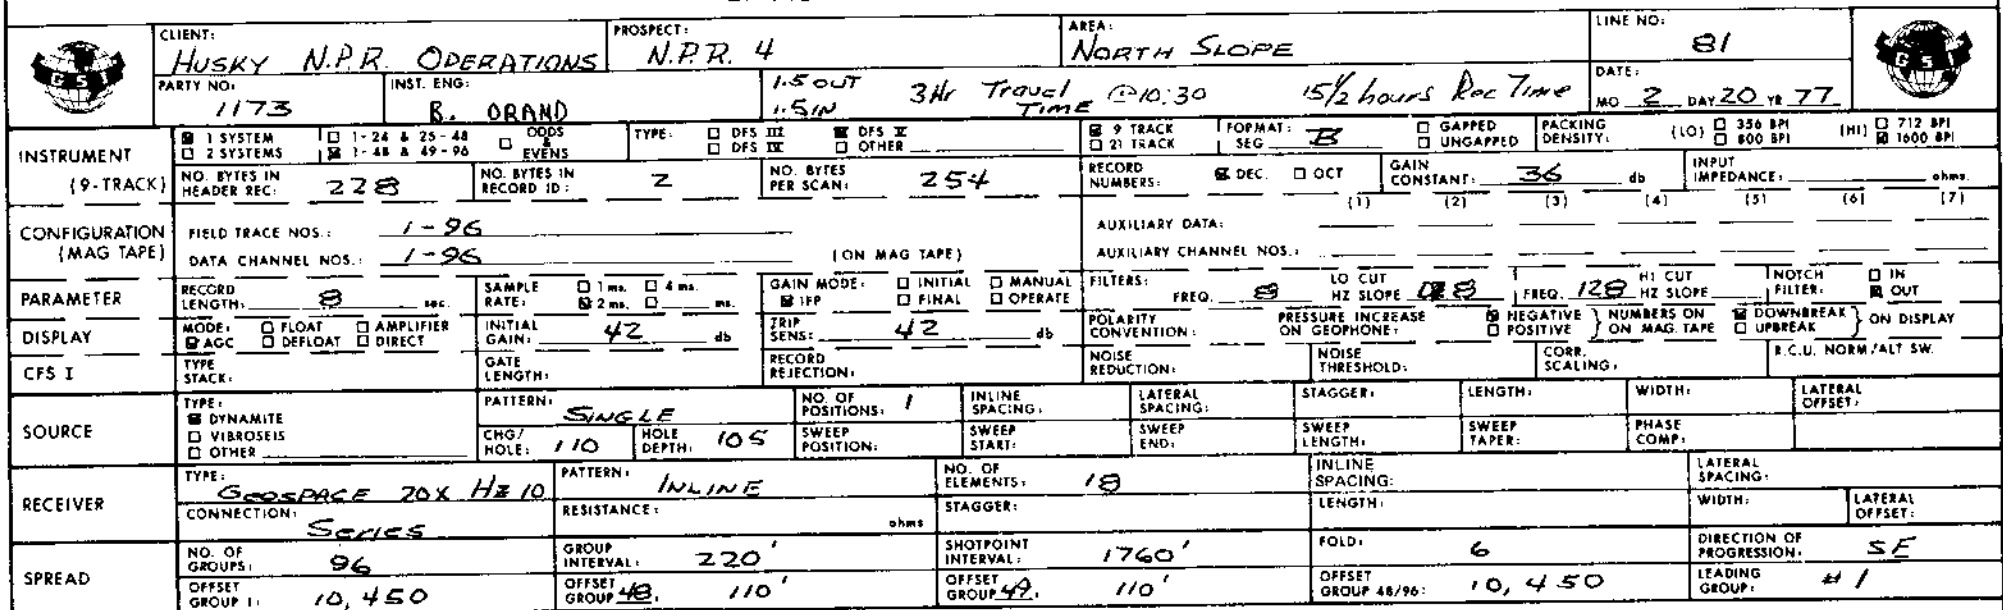 CLIENT: HUSKY N.P.R. OPERATIONS PROSPECT: N.P.R. 4 AREA: NORTH SLOPE LINE NO: 81
GSI
PARTY NO: 1173 INST. ENG: B. ORAND 1.5 OUT 1.5 IN 3 Hr Travel TIME @ 10:30 15 1/2 hours Rec Time DATE: MO 2 DAY 20 YR 77
GSI
INSTRUMENT (9-TRACK)
1 SYSTEM 1-24 & 25-48 ODDS & EVENS TYPE: DFS III DFS V 9 TRACK FORMAT: SEG B GAPPED PACKING DENSITY: (LO) 356 BPI (HI) 712 BPI
2 SYSTEMS 1-48 & 49-96 DFS IV OTHER 21 TRACK UNGAPPED 800 BPI 1600 BPI
NO. BYTES IN HEADER REC: 228 NO. BYTES IN RECORD ID: 2 NO. BYTES PER SCAN: 254 RECORD NUMBERS: DEC. OCT GAIN CONSTANT: 36 db INPUT IMPEDANCE: ohms.
CONFIGURATION (MAG TAPE)
(1) (2) (3) (4) (5) (6) (7)
FIELD TRACE NOS.: 1-96 AUXILIARY DATA:
DATA CHANNEL NOS.: 1-96 (ON MAG TAPE) AUXILIARY CHANNEL NOS.:
PARAMETER
RECORD LENGTH: 8 sec. SAMPLE RATE: 1 ms. 4 ms. 2 ms. ms. GAIN MODE: INITIAL MANUAL IFP FINAL OPERATE FILTERS: LO CUT FREQ. 8 HZ SLOPE 8 HI CUT FREQ. 128 HZ SLOPE NOTCH FILTER: IN OUT
DISPLAY
MODE: FLOAT AMPLIFIER AGC DEFLOAT DIRECT INITIAL GAIN: 42 db TRIP SENS: 42 db POLARITY CONVENTION: PRESSURE INCREASE ON GEOPHONE: NEGATIVE POSITIVE NUMBERS ON ON MAG. TAPE DOWNBREAK UPBREAK ON DISPLAY
CFS I
TYPE STACK: GATE LENGTH: RECORD REJECTION: NOISE REDUCTION: NOISE THRESHOLD: CORR. SCALING: R.C.U. NORM/ALT SW.
SOURCE
TYPE: DYNAMITE VIBROSEIS OTHER PATTERN: SINGLE NO. OF POSITIONS: 1 INLINE SPACING: LATERAL SPACING: STAGGER: LENGTH: WIDTH: LATERAL OFFSET:
CHG/HOLE: 110 HOLE DEPTH: 105 SWEEP POSITION: SWEEP START: SWEEP END: SWEEP LENGTH: SWEEP TAPER: PHASE COMP:
RECEIVER
TYPE: GEOSPACE 20X HZ 10 PATTERN: INLINE NO. OF ELEMENTS: 18 INLINE SPACING: LATERAL SPACING:
CONNECTION: Series RESISTANCE: ohms STAGGER: LENGTH: WIDTH: LATERAL OFFSET:
SPREAD
NO. OF GROUPS: 96 GROUP INTERVAL: 220' SHOTPOINT INTERVAL: 1760' FOLD: 6 DIRECTION OF PROGRESSION: SE
OFFSET GROUP 1: 10,450 OFFSET GROUP 48: 110' OFFSET GROUP 49: 110' OFFSET GROUP 48/96: 10,450 LEADING GROUP: #1